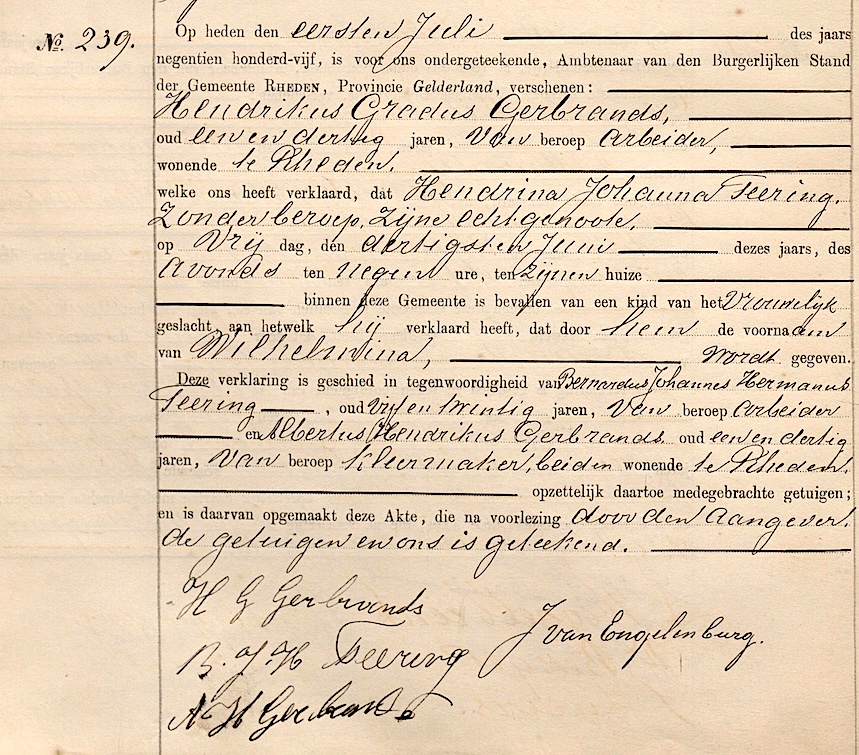 No. 239.
Op heden den eersten Juli des jaars
negentien honderd-vijf, is voor ons ondergeteekende, Ambtenaar van den Burgerlijken Stand
der Gemeente RHEDEN, Provincie Gelderland, verschenen:
Hendrikus Gradus Gerbrands,
oud een en dertig jaren, van beroep arbeider,
wonende te Rheden.
welke ons heeft verklaard, dat Hendrina Johanna Teering.
zonder beroep, zijne echtgenoote,
op Vrij dag, den dertigsten Juni dezes jaars, des
avonds ten negen ure, ten zijnen huize
binnen deze Gemeente is bevallen van een kind van het vrouwelijk
geslacht, aan hetwelk hij verklaard heeft, dat door hem de voornaam
van Wilhelmina, wordt gegeven.
Deze verklaring is geschied in tegenwoordigheid van Bernardus Johannes Hermanus
Teering, oud vijf en twintig jaren, van beroep arbeider
en Albertus Hendrikus Gerbrands oud een en dertig
jaren, van beroep kleermaker, beiden wonende te Rheden,
opzettelijk daartoe medegebrachte getuigen;
en is daarvan opgemaakt deze Akte, die na voorlezing door den aangever,
de getuigen en ons is geteekend.
H G Gerbrands
J van Engelenburg.
B. J. H Teering
A H Gerbrands